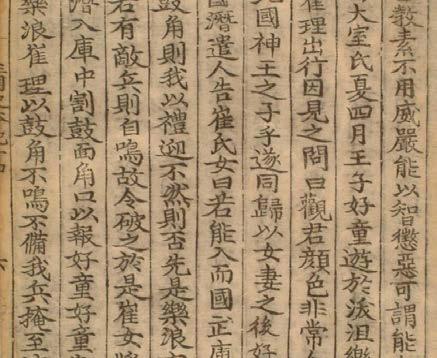 教素不用威嚴能以智懲惡可謂能
大室氏夏四月王子好童遊於沃沮樂
崔理出行因見之問曰觀君顔色非常
國神王之子乎遂同歸以女妻之後好
國潛遣人告崔氏女曰若能入而國武庫
鼓角則我以禮迎不然則否先是樂浪
若有敵兵則自鳴故令破之於是崔女將
潛入庫中割鼓面角口以報好童好童
樂浪崔理以鼓角不鳴不備我兵掩至